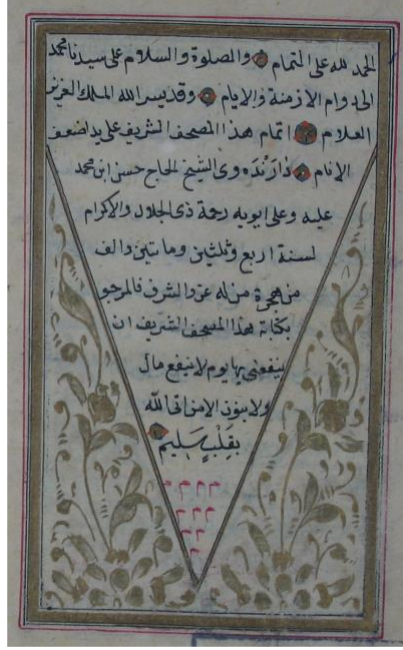 الحمد لله على التمام والصلوة والسلام على سيدنا محمد
الى دوام الازمنة والايام وقد يسر الله الملك العزيز
العلام اتمام هذا المصحف الشريف على يد اضعف
الانام دارنده وى الشيخ الحاج حسن ابن محمد
عليه وعلى ابويه رحمة ذى الجلال والاكرام
لسنة اربع وثلثين وماتين والف
من هجرة من له عز والشرف فالمرجو
بكتابة هذا المصحف الشريف ان
ينفعنى بها يوم لا ينفع مال
ولا بنون الا من اتى الله
بِقَلْبٍ سَلِيمٍ
م م م م
م م م
م م
م